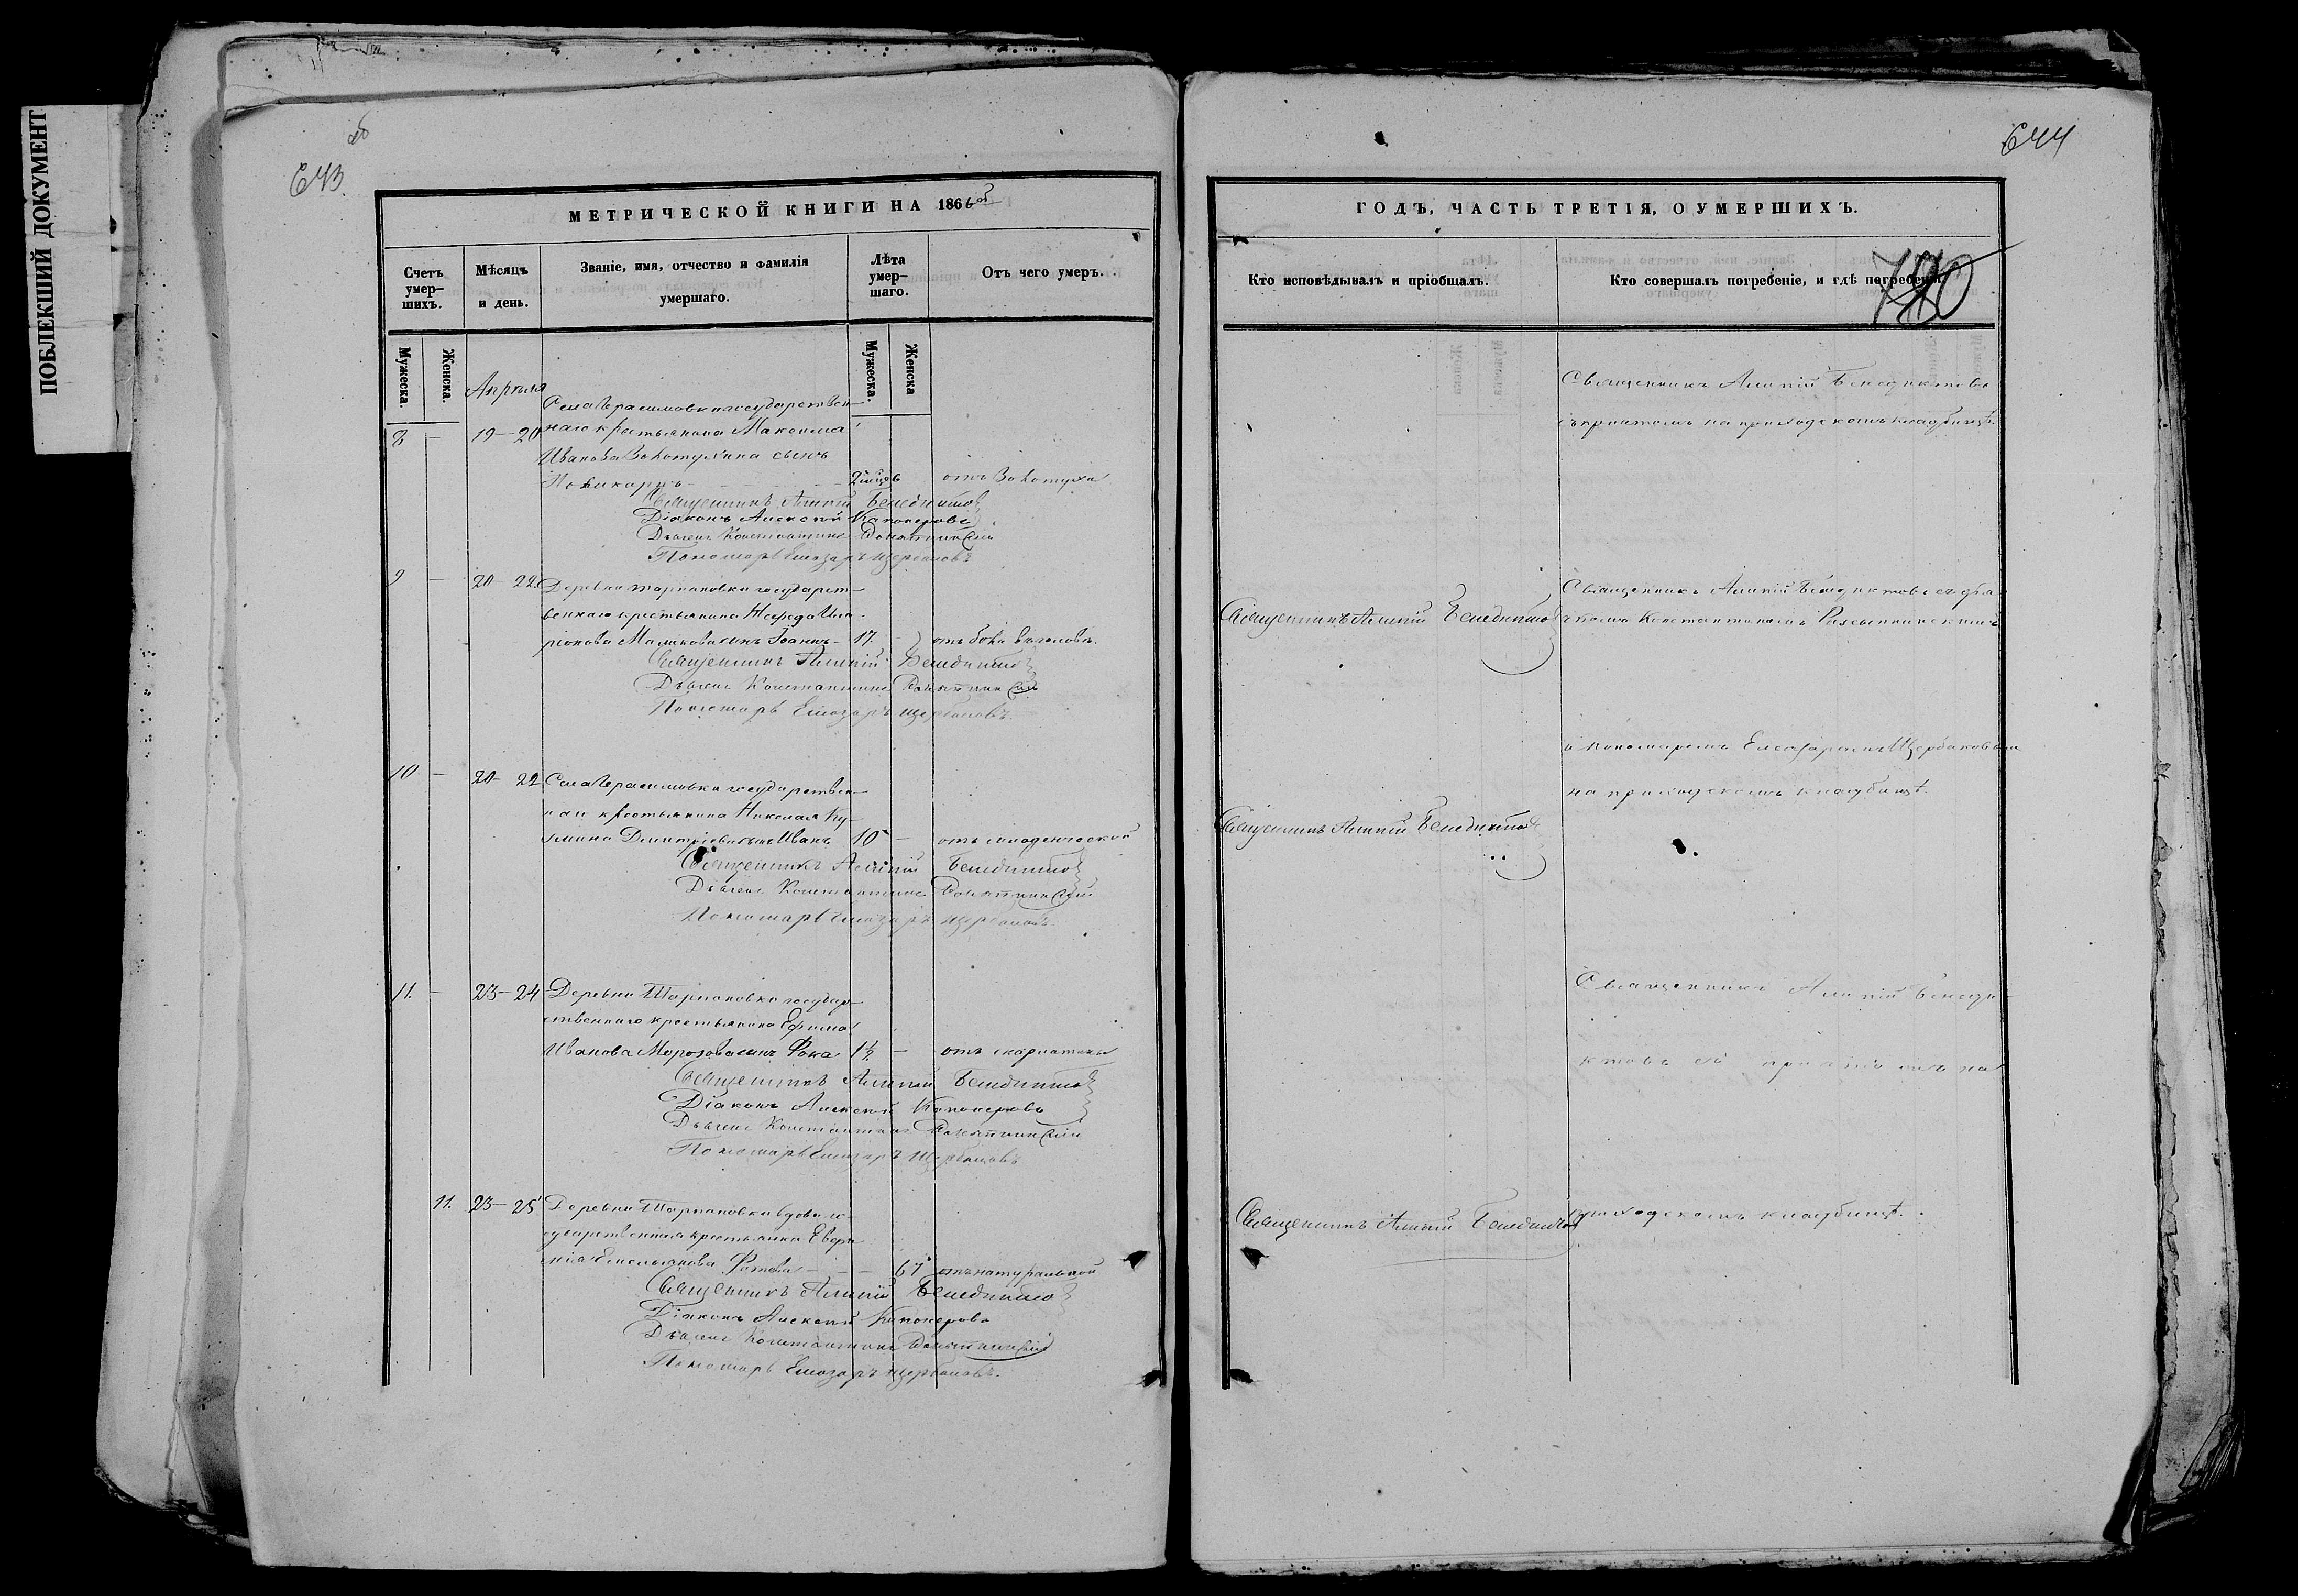 ПОБЛЕКШИЙ ДОКУМЕНТ
об
643.
МЕТРИЧЕСКОЙ КНИГИ НА 1866ой
Счетъ умер-шихъ.
Мѣсяцъ и день.
Званіе, имя, отчество и фамилія умершаго.
Лѣта умер-шаго.
Отъ чего умеръ.
Мужеска.
Женска.
Мужеска.
Женска
Апрѣля
Села Герасимовки государствен-
8 — 19—20 наго крестьянина Максима
Иванова Золотухина сынъ
Поликарпъ — 2 мѣсцовъ отъ Золотухи
Священникъ Алипій Бенедиктовъ
Діаконъ Алексѣй Канонеровъ
Дьячекъ Константинъ
Пономарь Елеазаръ Щербаковъ
9 — 20—22 Деревни государст-
веннаго крестьянина Ила-
ріонова сынъ Іоаннъ — 17. — отъ боли въ головѣ.
Священникъ Алипій Бенедиктовъ
Дьячекъ Константинъ
Пономарь Елеазаръ Щербаковъ.
10 — 20—22 Села Герасимовки государствен-
наго крестьянина Николая Ку-
зьмина сынъ Иванъ 10 — отъ младенческой
Священникъ Алипій Бенедиктовъ
Дьячекъ Константинъ
Пономарь Елеазаръ Щербаковъ.
11. — 23—24 Деревни государ-
ственнаго крестьянина Ефима
Иванова Морозова сынъ Фока 1½ — отъ скарлатины
Священникъ Алипій Бенедиктовъ
Діаконъ Алексѣй Канонеровъ
Дьячекъ Константинъ
Пономарь Елеазаръ Щербаковъ
11. 23—25 Деревни вдова го-
сударственная крестьянка Евфи-
мія Емельянова — 67 отъ натуральной
Священникъ Алипій Бенедиктовъ
Діаконъ Алексѣй Канонеровъ
Дьячекъ Константинъ
Пономарь Елеазаръ Щербаковъ.
644
ГОДЪ, ЧАСТЬ ТРЕТІЯ, О УМЕРШИХЪ.
Кто исповѣдывалъ и пріобщалъ.
Кто совершалъ погребеніе, и гдѣ погребены.
Священникъ Алипій Бенедиктовъ
съ причтомъ на приходскомъ кладбищѣ.
Священникъ Алипій Бенедиктовъ
Священникъ Алипій Бенедиктовъ съ дья-
чкомъ Константиномъ
и пономаремъ Елеазаромъ Щербаковымъ
на приходскомъ кладбищѣ.
Священникъ Алипій Бенедиктовъ
Священникъ Алипій Бенеди-
ктовъ съ причтомъ на
Священникъ Алипій Бенедиктовъ
приходскомъ кладбищѣ.